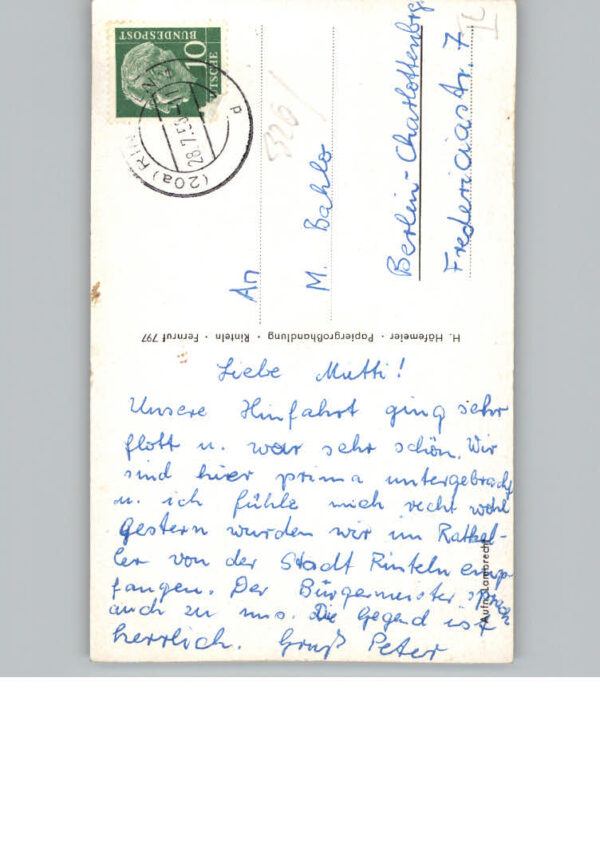 DEUTSCHE
BUNDESPOST
10
(20a) RIN
28.7.58
d
326/
An
M. Bahlo
Berlin-Charlottenbrg.
Fredericiastr. 7
H. Häfemeier · Papiergroßhandlung · Rinteln · Fernruf 797
Liebe Mutti!
Unsere Hinfahrt ging sehr
flott u. war sehr schön. Wir
sind hier prima untergebracht
u. ich fühle mich recht wohl
gestern wurden wir im Ratkel-
ler von der Stadt Rinteln emp-
fangen. Der Bürgermeister sprach
auch zu uns. Die Gegend ist
herrlich. Gruß Peter
Aufn. Lambrecht